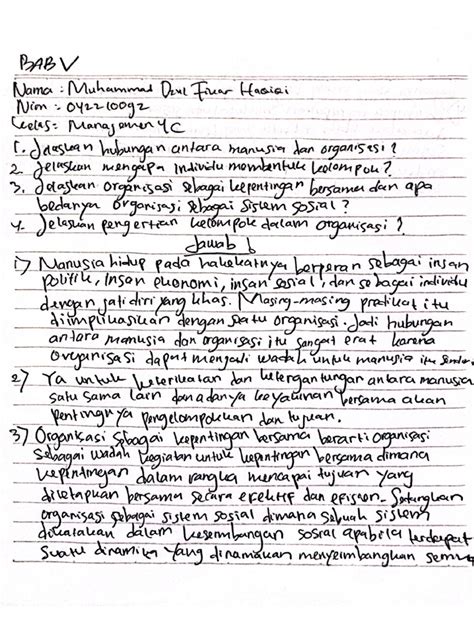 BAB V
Nama : Muhammad Dzul Fikar Hasisi
Nim : 042210092
Kelas : Manajemen 4C
1. Jelaskan hubungan antara manusia dan organisasi ?
2. Jelaskan mengapa Individu membentuk kelompok ?
3. Jelaskan organisasi sebagai kepentingan bersama dan apa
bedanya organisasi sebagai sistem sosial ?
4. Jelaskan pengertian kelompok dalam organisasi ?
Jawab
1) Manusia hidup pada hakekatnya berperan sebagai insan
politik, Insan ekonomi, insan sosial, dan sebagai individu
dengan jati diri yang khas. Masing-masing predikat itu
diimplikasikan dengan suatu organisasi. Jadi hubungan
antara manusia dan organisasi itu sangat erat karena
organisasi dapat menjadi wadah untuk manusia itu sendiri.
2) Ya untuk keterikatan dan ketergantungan antara manusia
satu sama lain dan adanya keyakinan bersama akan
pentingnya pengelompokkan dan tujuan.
3) Organisasi sebagai kepentingan bersama berarti organisasi
sebagai wadah kegiatan untuk kepentingan bersama dimana
kepentingan dalam rangka mencapai tujuan yang
ditetapkan bersama secara efektif dan efisien. Sedangkan
organisasi sebagai sistem sosial dimana sebuah sistem
dikatakan dalam keseimbangan sosial apabila terdapat
suatu dinamika yang dinamakan menyeimbangkan semua